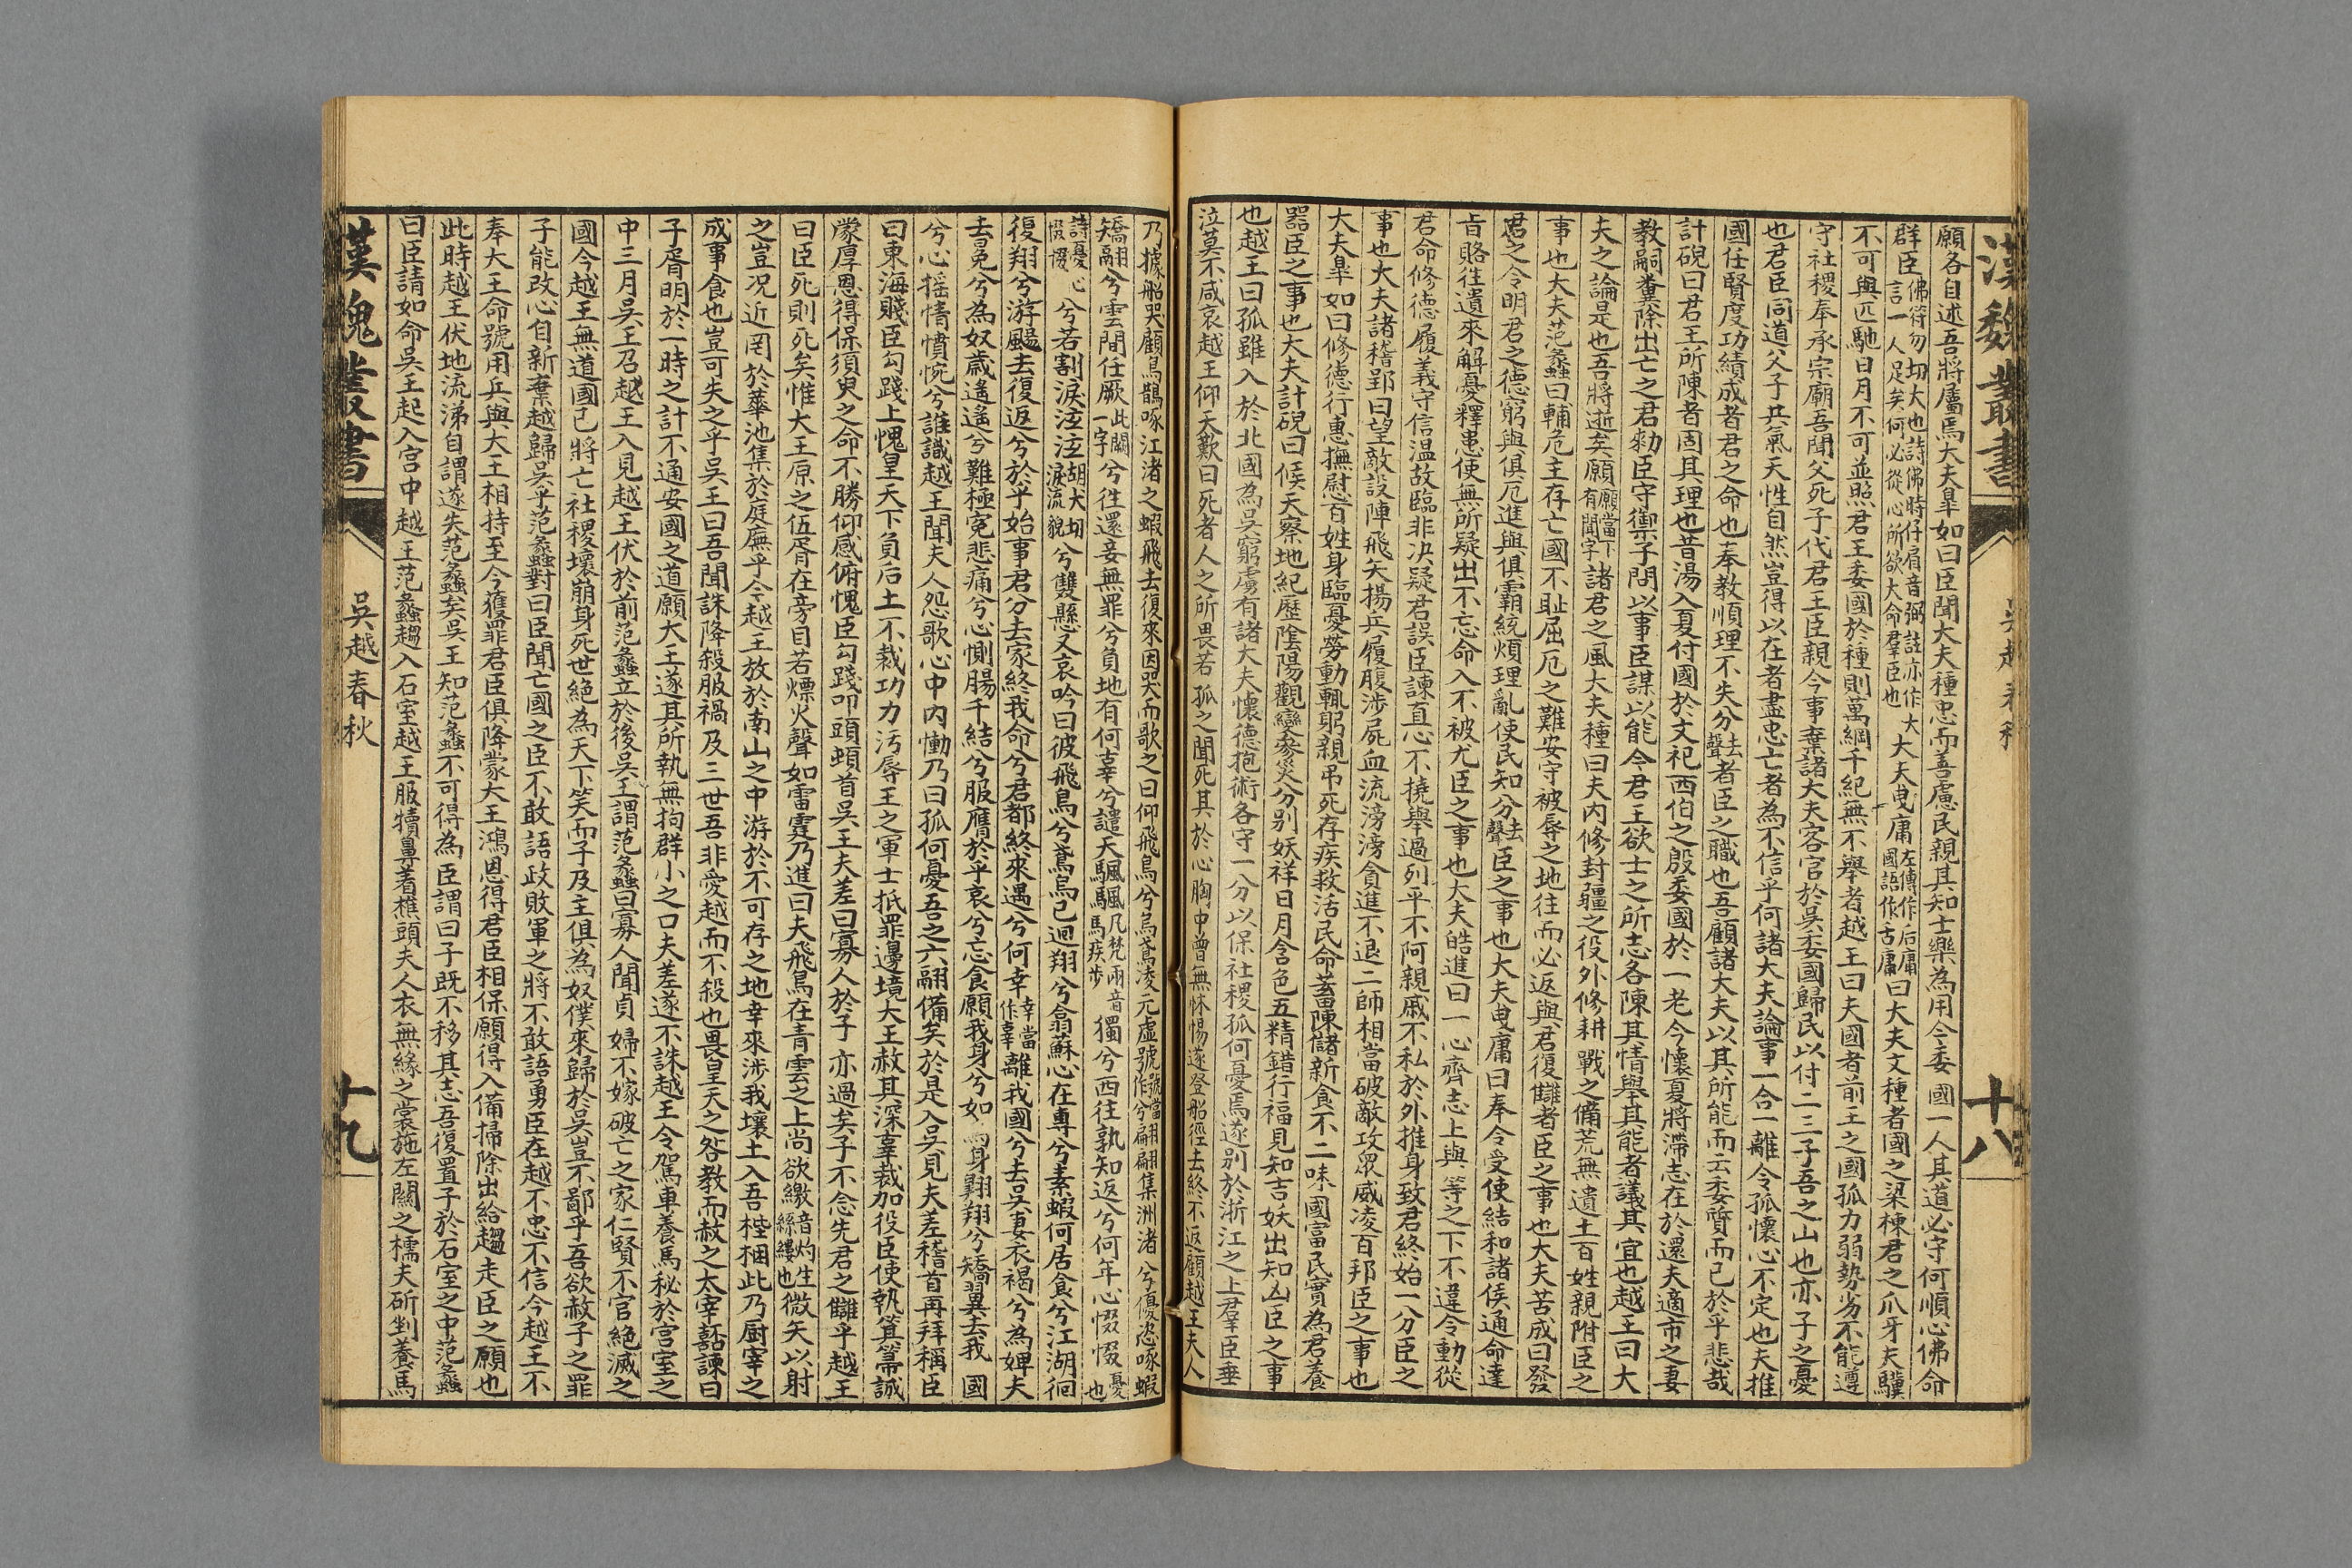 漢魏叢書 吳越春秋 十八
願各自述吾將屬焉大夫臯如曰臣聞大夫種忠而善慮民親其知士樂為用今委國一人其道必守何順心佛命
群臣佛符勿切大也詩佛時仔肩音弼註亦作大言一人足矣何必從心所欲大命羣臣也大夫曳庸左傳作后庸國語作舌庸曰大夫文種者國之梁棟君之爪牙夫驥
不可與匹馳日月不可並照君王委國於種則萬綱千紀無不舉者越王曰夫國者前王之國孤力弱勢劣不能遵
守社稷奉承宗廟吾聞父死子代君亡臣親今事棄諸大夫客官於吳委國歸民以付二三子吾之山也亦子之憂
也君臣同道父子共氣天性自然豈得以在者盡忠亡者為不信乎何諸大夫論事一合一離令孤懷心不定也夫推
國任賢度功績成者君之命也奉教順理不失分去聲者臣之職也吾顧諸大夫以其所能而云委質而已於乎悲哉
計硯曰君王所陳者固其理也昔湯入夏付國於文祀西伯之殷委國於一老今懷夏將滯志在於還夫適市之妻
教嗣糞除出亡之君勑臣守禦子問以事臣謀以能今君王欲士之所志各陳其情舉其能者議其宜也越王曰大
夫之論是也吾將逝矣願願當下有聞字諸君之風大夫種曰夫內修封疆之役外修耕戰之備荒無遺土百姓親附臣之
事也大夫范蠡曰輔危主存亡國不耻屈厄之難安守被辱之地往而必返與君復讎者臣之事也大夫苦成曰發
君之令明君之德窮與俱厄進與俱霸統煩理亂使民知分去聲臣之事也大夫曳庸曰奉令受使結和諸侯通命達
旨賂徃遺來解憂釋患使無所疑出不忘命入不被尤臣之事也大夫皓進曰一心齊志上與等之下不違令動從
君命修德履義守信温故臨非决疑君誤臣諫直心不撓舉過列平不阿親戚不私於外推身致君終始一分臣之
事也大夫諸稽郢曰望敵設陣飛矢揚兵履腹涉屍血流滂滂貪進不退二師相當破敵攻眾威凌百邦臣之事也
大夫臯如曰修德行惠撫慰百姓身臨憂勞動輒躬親吊死存疾救活民命蓄陳儲新食不二味國富民實為君養
器臣之事也大夫計硯曰候天察地紀歷陰陽觀變參災分別妖祥日月含色五精錯行福見知吉妖出知凶臣之事
也越王曰孤雖入於北國為吳窮虜有諸大夫懷德抱術各守一分以保社稷孤何憂焉遂別於浙江之上群臣垂
泣莫不咸哀越王仰天歎曰死者人之所畏若孤之聞死其於心胸中曾無怵惕遂登船徑去終不返顧越王夫人
乃據船哭顧鳥鵲啄江渚之蝦飛去復來因哭而歌之曰仰飛鳥兮烏鳶淩元虛號號當作兮翩翩集洲渚兮優恣啄蝦
矯翮兮雲間任厥此闕一字兮徃還妾無罪兮負地有何辜兮譴天颿颿凡梵兩音馬疾步獨兮西往孰知返兮何年心惙惙憂也
詩憂心惙惙兮若割淚泫泫胡犬切淚流貌兮雙懸又哀吟曰彼飛鳥兮鳶烏已迴翔兮翕蘇心在專兮素蝦何居食兮江湖徊
復翔兮游颺去復返兮於乎始事君兮去家終我命兮君都終來遇兮何幸幸當作辜離我國兮去吳妻衣褐兮為婢夫
去冕兮為奴歲遙遙兮難極寃悲痛兮心惻腸千結兮服膺於乎哀兮忘食願我身兮如鳥身翱翔兮矯翼去我國
兮心搖情憤惋兮誰識越王聞夫人怨歌心中內慟乃曰孤何憂吾之六翮備矣於是入吳見夫差稽首再拜稱臣
曰東海賤臣勾踐上愧皇天下負后土不裁功力汚辱王之軍士抵罪邊境大王赦其深辜裁加役臣使執箕箒誠
蒙厚恩得保須臾之命不勝仰感俯愧臣勾踐叩頭頓首吳王夫差曰寡人於子亦過矣子不念先君之讎乎越王
曰臣死則死矣惟大王原之伍胥在旁目若熛火聲如雷霆乃進曰夫飛鳥在青雲之上尚欲繳音灼生絲縷也微矢以射
之豈况近囘於華池集於庭廡乎今越王放於南山之中游於不可存之地幸來涉我壤土入吾梐梱此乃厨宰之
成事食也豈可失之乎吳王曰吾聞誅降殺服禍及三世吾非愛越而不殺也畏皇天之咎教而赦之太宰嚭諫曰
子胥明於一時之計不通安國之道願大王遂其所執無拘群小之口夫差遂不誅越王令駕車養馬秘於宮室之
中三月吳王召越王入見越王伏於前范蠡立於後吳王謂范蠡曰寡人聞貞婦不嫁破亡之家仁賢不官絕滅之
國今越王無道國已將亡社稷壞崩身死世絕為天下笑而子及主俱為奴僕來歸於吳豈不鄙乎吾欲赦子之罪
子能改心自新棄越歸吳乎范蠡對曰臣聞亡國之臣不敢語政敗軍之將不敢語勇臣在越不忠不信今越王不
奉大王命號用兵與大王相持至今獲罪君臣俱降蒙大王鴻恩得君臣相保願得入備掃除出給趨走臣之願也
此時越王伏地流涕自謂遂失范蠡矣吳王知范蠡不可得為臣謂曰子既不移其志吾復置子於石室之中范蠡
曰臣請如命吳王起入宮中越王范蠡趨入石室越王服犢鼻着樵頭夫人衣無緣之裳施左關之襦夫斫剉養馬
漢魏叢書 吳越春秋 十九